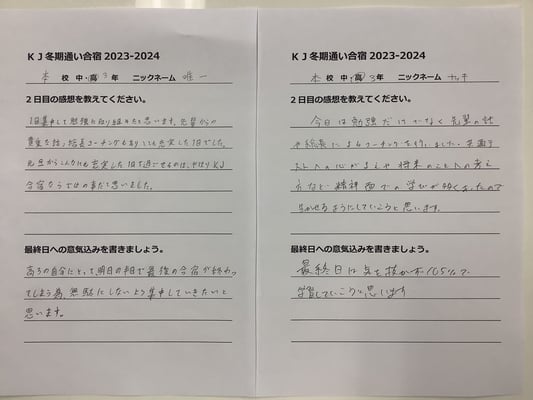 KJ冬期通い合宿 2023-2024
本 校 中・高 3 年 ニックネーム 唯一
2日目の感想を教えてください。
1日集中して勉強に取り組めたと思います。先輩からの
貴重な話、塾長コーチングもありとても充実した1日でした。
元旦からこんなにも充実した1日を過ごせるのは、やはりKJ
合宿ならではの事だと思いました。
最終日への意気込みを書きましょう。
高3の自分にとって明日の和田で最後の合宿が終わっ
てしまう為、無駄にしないよう集中していきたいと
思います。
KJ冬期通い合宿 2023-2024
本 校 中・高 3 年 ニックネーム ナッチ
2日目の感想を教えてください。
今日は勉強だけでなく先輩の話
や塾長によるコーチングを行いました。共通テ
ストへの心がまえや将来のことへの考え
方など、精神面での学びが多くあったので
生かせるようにしていこうと思います。
最終日への意気込みを書きましょう。
最終日は気を抜かず105%で
学習していこうと思います